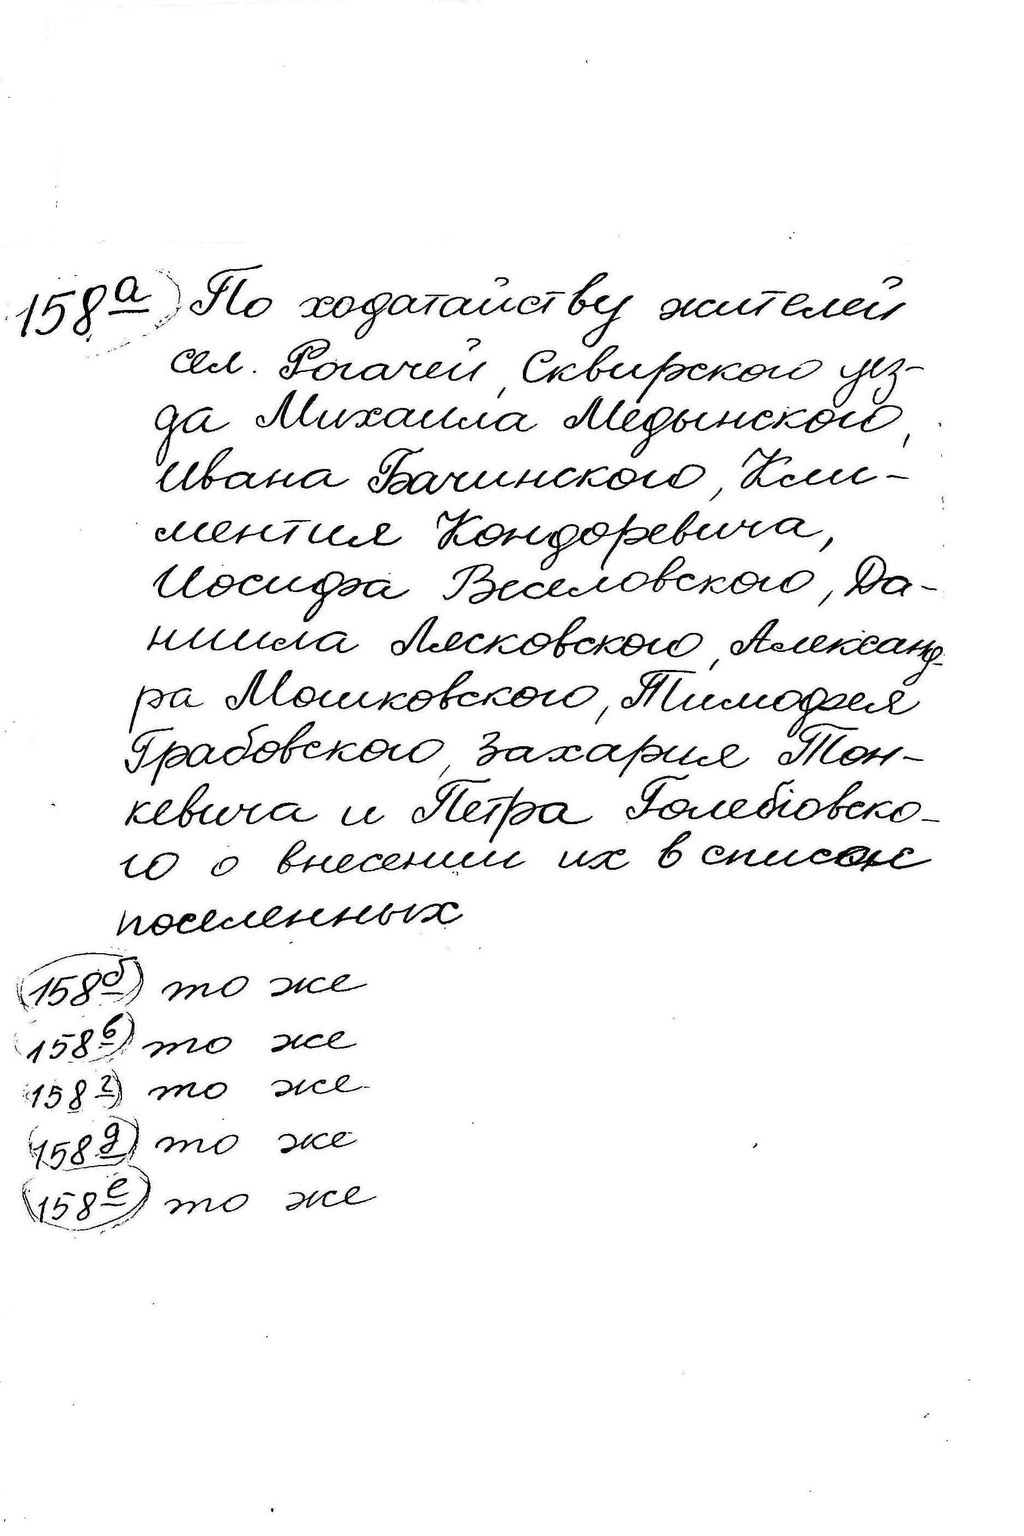 158а) По ходатайству жителей
сел. Рогачей, Сквирского уез-
да Михаила Медынского,
Ивана Бачинского, Кли-
ментия Кондоревича,
Иосифа Веселовского, Да-
ниила Лясковского, Александ-
ра Мошковского, Тимофея
Грабовского, Захария Тон-
кевича и Петра Голебіовско-
го о внесении их в список
поселенных
158б) то же
158в) то же
158г) то же
158д) то же
158е) то же